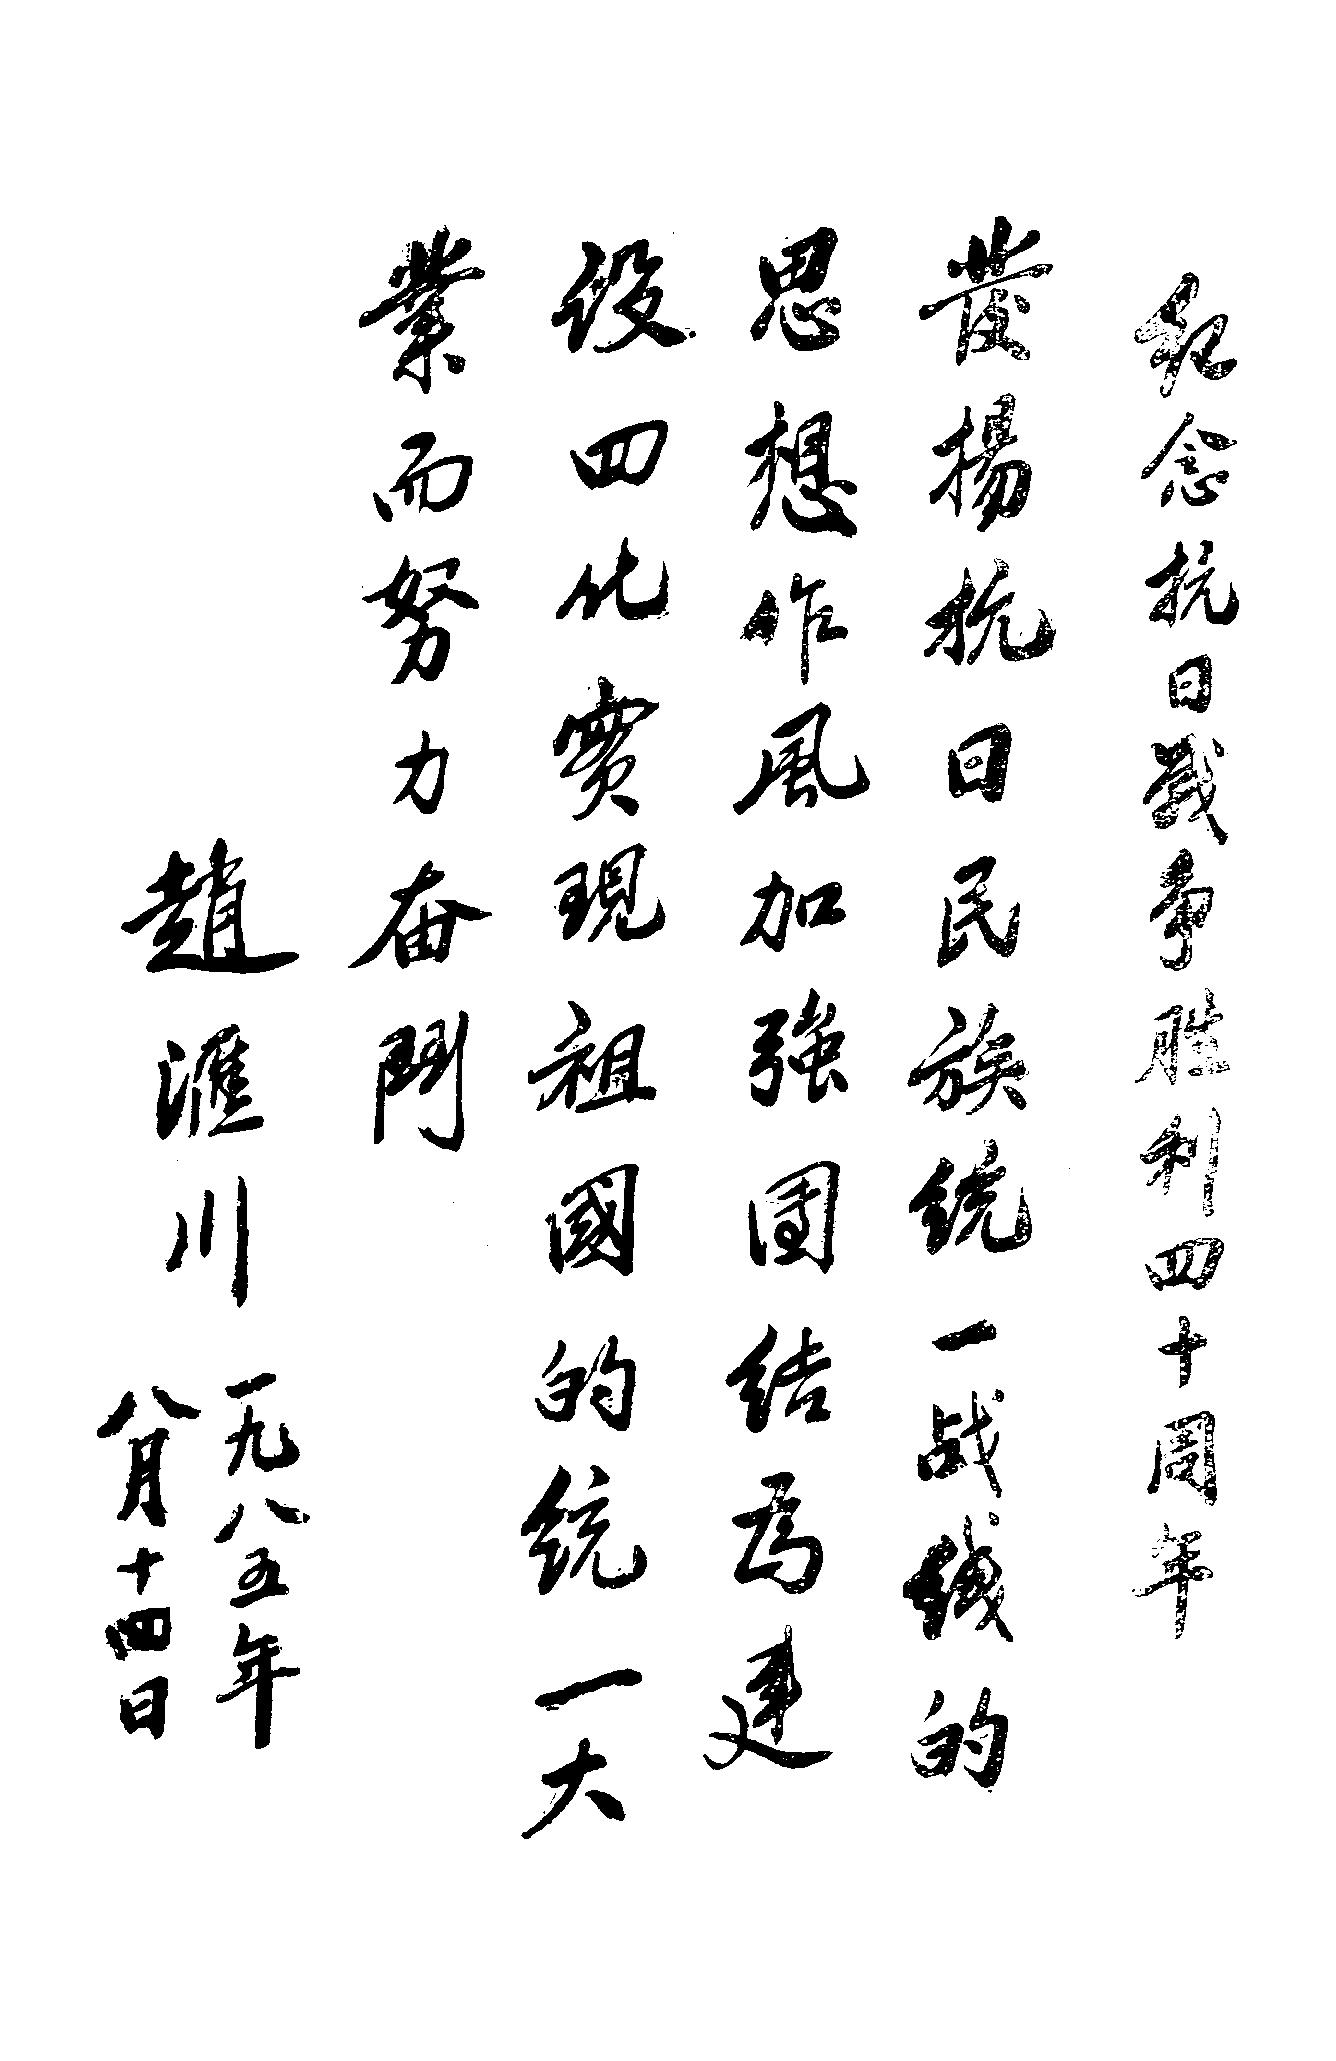 紀念抗日戰爭胜利四十周年
發揚抗日民族統一战线的
思想作風加強團結為建
設四化實現祖國的統一大
業而努力奋鬥
趙滙川
一九八五年
八月十四日